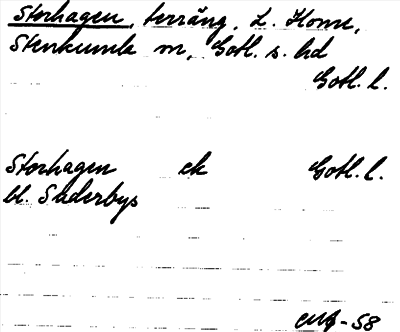 Storhagen, terräng, L. Home,
Stenkumla m, Gotl. s. hd
Gotl. l.
Storhagen ek Gotl. l.
bl. Söderbys
-58